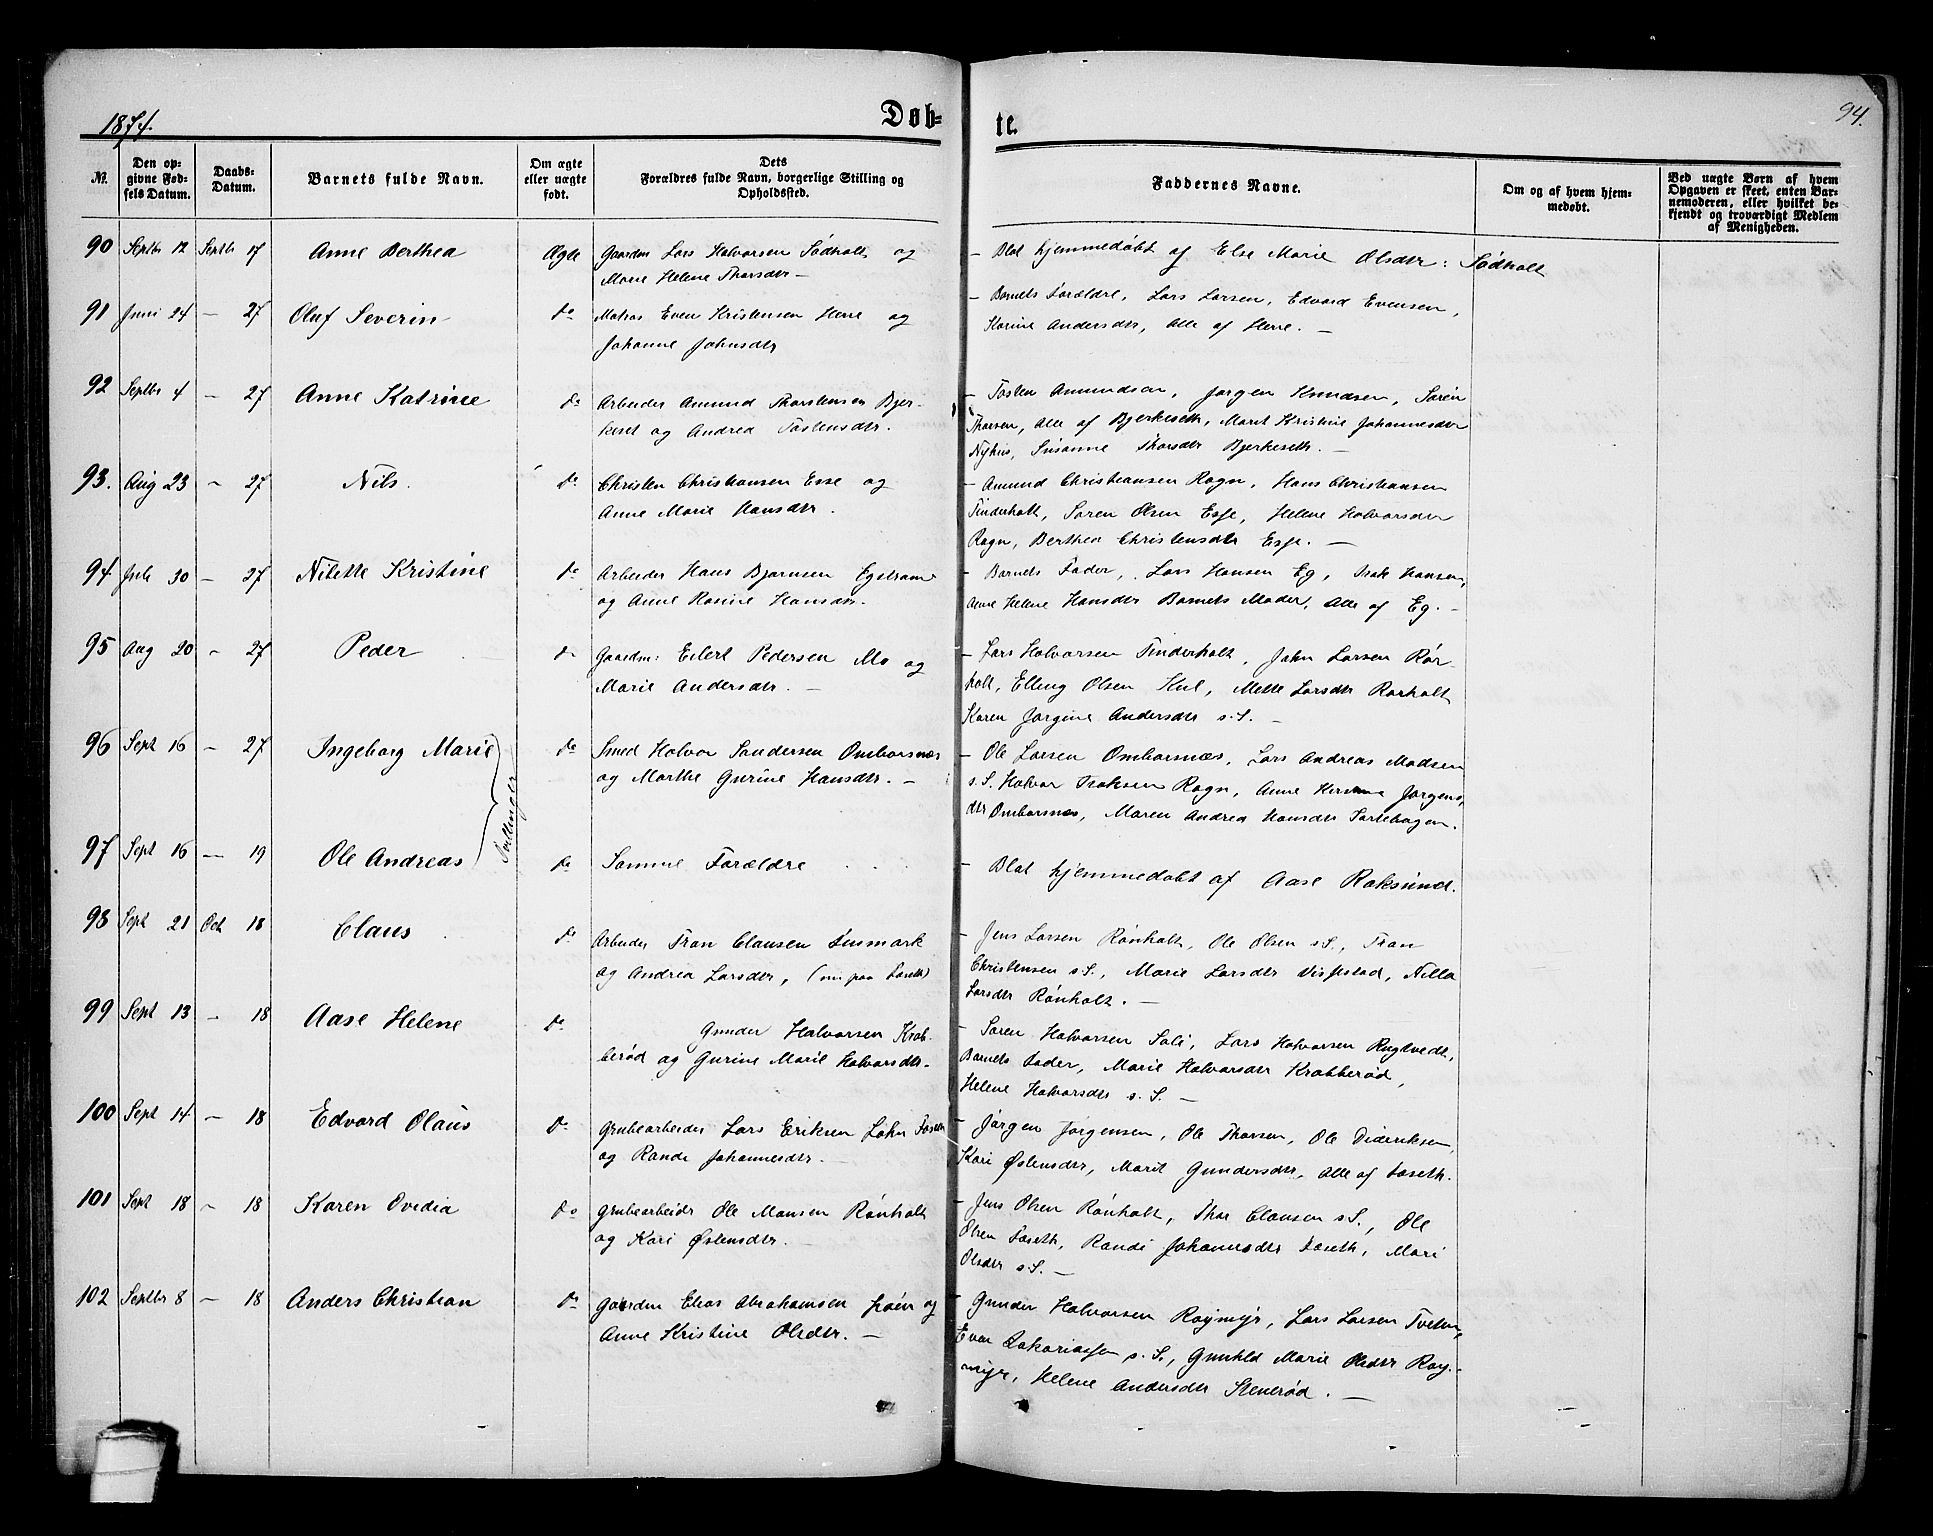 1874.
Døb=
te.
94.
Nr.
Den op=
givne Fød=
sels Datum.
Daabs=
Datum.
Barnets fulde Navn.
Om ægte
eller uægte
født.
Dets
Forældres fulde Navn, borgerlige Stilling og
Opholdssted.
Faddernes Navne.
Om og af hvem hjem=
medøbt.
Ved uægte Børn af hvem
Opgaven er skeet, enten Bar=
nemoderen, eller hvilket be=
kjendt og troværdigt Medlem
af Menigheden.
90 Septbr 12 Septbr 17 Anne Berthea Ægte Gaardm Lars Halvorsen Sødholt og
Marie Helene Thorsdtr —
— Blot hjemmedøbt af Else Marie Olsdtr: Sødholt
91 Juni 24 — 27 Oluf Severin do Matros Even Kristensen Herre og
Johanne Johnsdtr
— Barnets Forældre, Lars Larsen, Edvard Evensen,
Karine Andersdtr, Alle af Herre. —
92 Septbr 4 — 27 Anne Katrine do Arbeider Amund Thorstensen Bjer-
keset og Andrea Tostensdtr.
— Tosten Amundsen, Jørgen Knudsen, Søren
Thorsen, Alle af Bjerkeseth, Marit Kristine Johannesdtr
Nyhus, Susanne Thorsdtr Bjerkeseth. —
93. Aug 23 — 27 Nils. do Christen Christiansen Esse og
Anne Marie Hansdtr.
— Amund Christiansen Rogn, Hans Christiansen
Tinderholt, Søren Olsen Esse, Helene Halvorsdtr
Rogn, Berthea Christensdtr Esse. —
94. Juli 30 — 27 Nilette Kristine do Arbeider Hans Bjørnsen
og Anne Rosine Hansdtr.
— Barnets Fader, Lars Hansen Eg, Isak Hansen,
Anne Helene Hansdtr Barnets Moder, Alle af Eg. —
95 Aug 20 — 27 Peder do Gaardm: Eilert Pedersen Mo og
Marie Andersdtr. —
— Lars Halvorsen Tinderholt, John Larsen Rør-
holt, Elling Olsen Kul, Mette Larsdtr Rørholt
Karen Jørgine Andersdtr s. S. —
96 Sept 16 — 27 Ingeborg Marie do Smed Halvor Sandersen Omborsnæs
og Marthe Gurine Hansdtr. —
— Ole Larsen Omborsnæs, Lars Andreas Madsen
s. S. Halvor Isaksen Rogn, Anne Jørgens
dtr Omborsnæs, Maren Andrea Hansdtr
Tvillinger
97 Sept 16 — 19 Ole Andreas do Samme Forældre
— Blot hjemmedøbt af Aase Roksund.
98 Sept 21 Oct 18 Claus do Arbeider Tran Clausen
og Andrea Larsdtr,
— Jens Larsen Rønholt, Ole Olsen s. S., Tran
Christensen s. S., Marie Larsdtr Visstad,
Larsdtr Rønholt. —
99 Sept 13 — 18 Aase Helene do Gunder Halvorsen Krab-
berød og Gurine Marie Halvorsdtr.
— Søren Halvorsen Sali, Lars Halvorsen Rugtvedt,
Barnets Fader, Marie Halvorsdtr Krabberød,
Helene Halvorsdtr s. S. —
100 Sept 14 — 18 Edvard Olaus do Grubearbeider Lars Eriksen
og Rande Johannesdtr. —
— Jørgen Jørgensen, Ole Thorsen, Ole Dideriksen,
Kari Østensdtr, Marit Gundersdtr, Alle af Foseth.
101 Sept 18 — 18 Karen Ovedia do Grubearbeidr Ole Monsen Rønholt
og Kari Østensdtr. —
— Jens Olsen Rønholt, Thor Clausen s. S., Ole
Olsen Foseth, Randi Johannesdtr Foseth, Mari
Olsdtr s. S. —
102 Septbr 8 — 18 Anders Christian do Gaardm Elias Abrahamsen og
Anne Kristine Olsdtr. —
— Gunder Halvorsen Roymyr, Lars Larsen Tveten,
Even Zakariassen s. S., Gunhld Marie Olsdtr Roy-
myr, Helene Andersdtr Stenerød. —